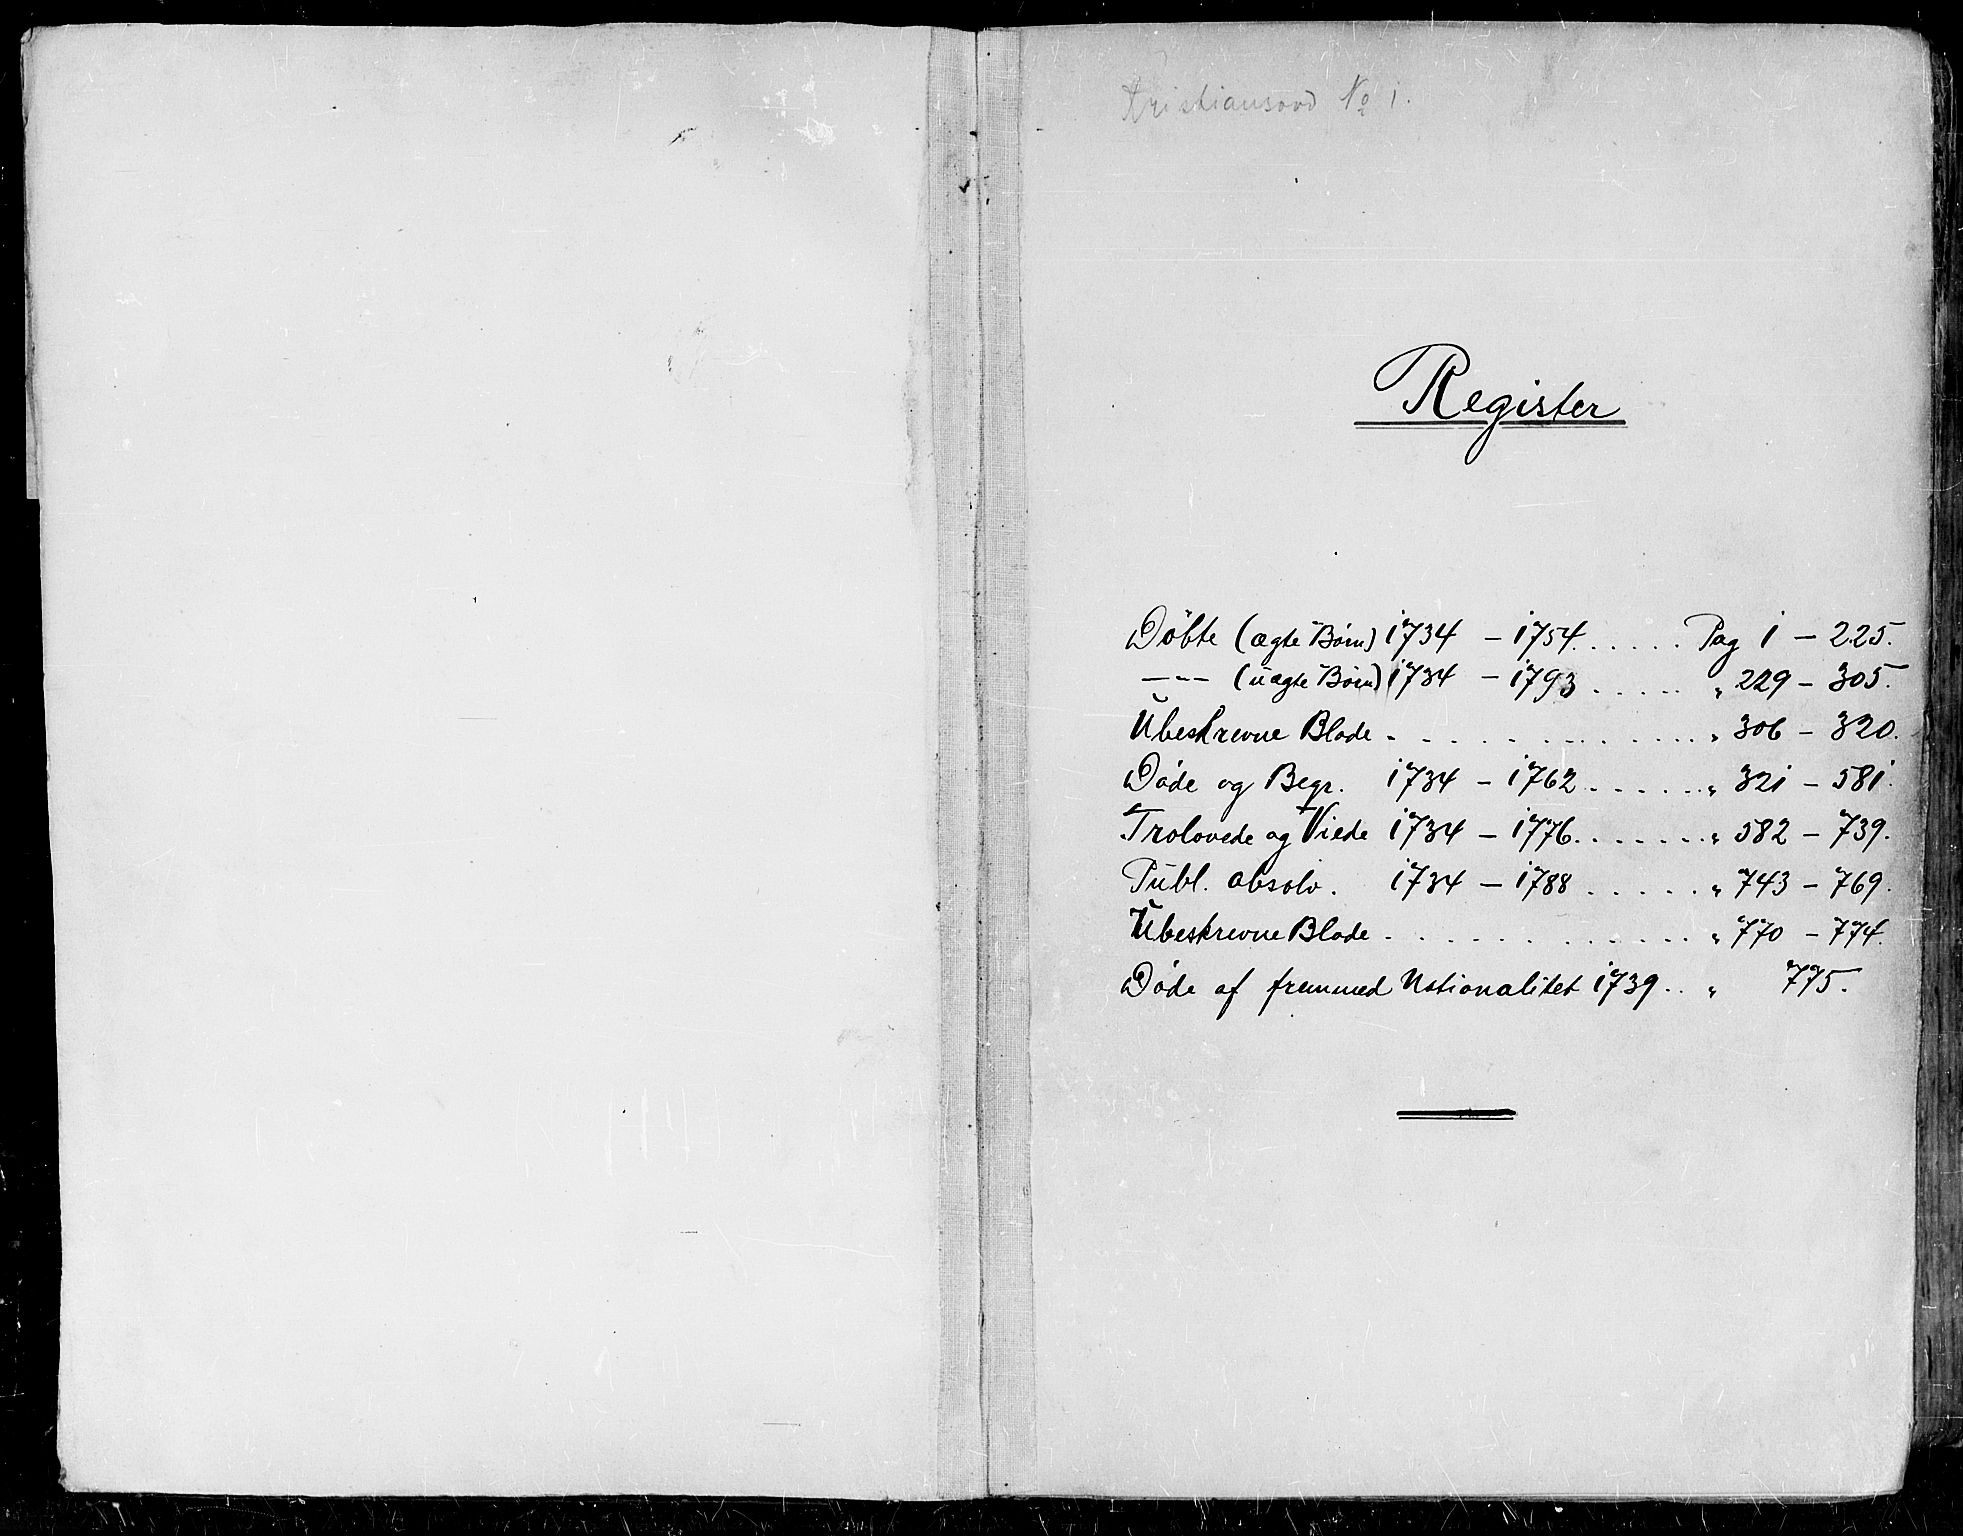 Kristiansand No 1.
Register
Döbte (ægte Börn) 1734 – 1754 . . . . . Pag 1 – 225.
— " — (uægte Börn) 1734 – 1793 . . . . . " 229 – 305.
Ubeskrevne Blade . . . . . . . . . . . . " 306 – 320.
Döde og Begr. 1734 – 1762 . . . . . . " 321 – 581.
Trolovede og Viede 1734 – 1776 . . . . . . " 582 – 739.
Publ. absolv. 1734 – 1788 . . . . . " 743 – 769.
Ubeskrevne Blade . . . . . . . . . . . " 770 – 774.
Döde af fremmed Nationalitet 1739 . . " 775.